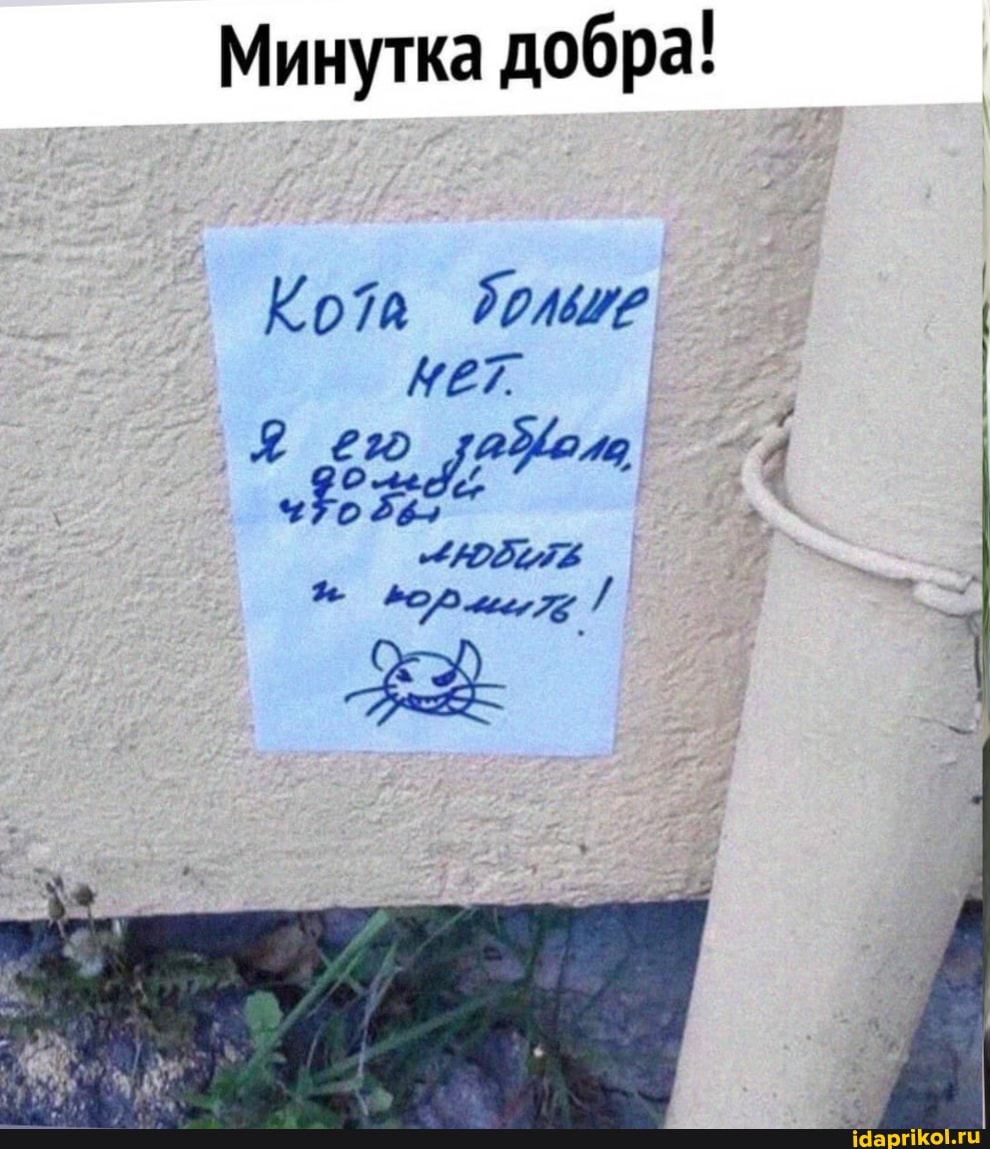 Минутка добра!
Кота больше
нет.
Я его забрала,
домой
чтобы
любить
и кормить!
idaprikol.ru